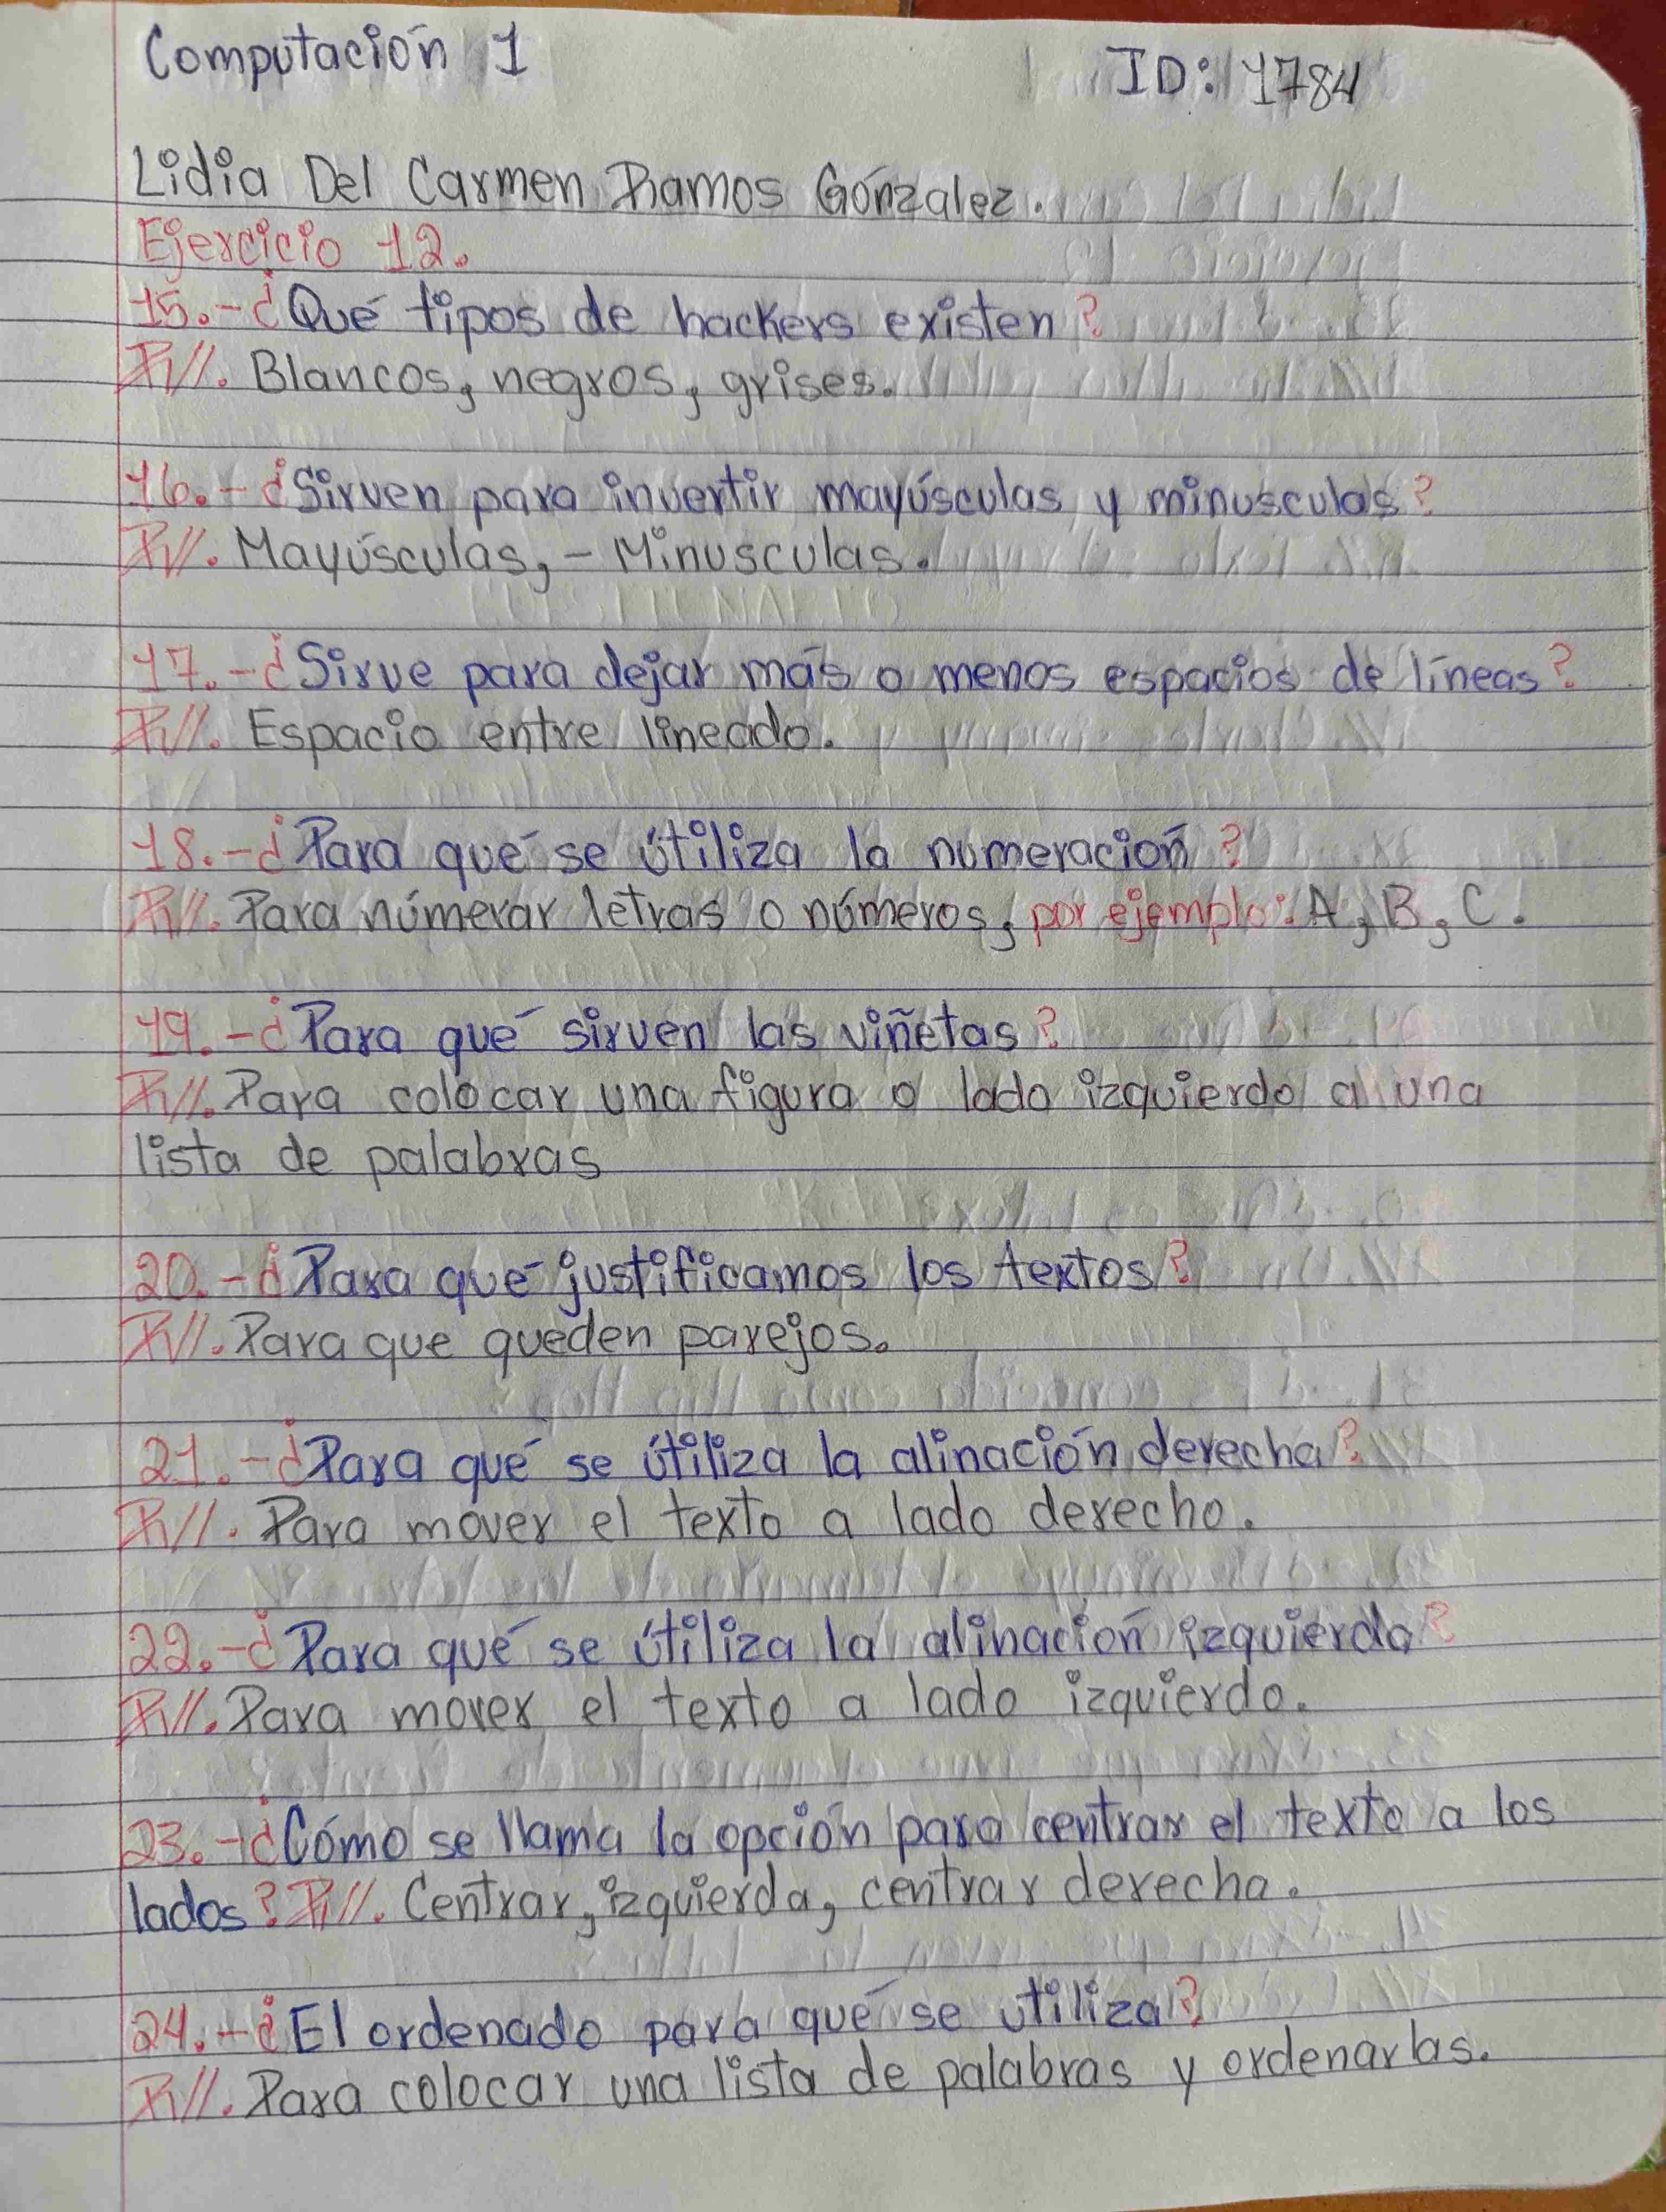 Computación 1
ID: 1784
Lidia Del Carmen Ramos Gónzalez.
Ejercicio 12.
15.-¿Qué tipos de hackers existen?
R//. Blancos, negros, grises.
16.-¿Sirven para invertir mayúsculas y minusculas?
R//. Mayúsculas, - Minusculas.
17.-¿Sirve para dejar más o menos espacios de líneas?
R//. Espacio entre lineado.
18.-¿Para qué se útiliza la numeración?
R//. Para númerar letras o números, por ejemplo: A, B, C.
19.-¿Para qué sirven las viñetas?
R//. Para colocar una figura o lado izquierdo a una
lista de palabras
20.-¿Para qué justificamos los textos?
R//. Para que queden parejos.
21.-¿Para qué se útiliza la alinación derecha?
R//. Para mover el texto a lado derecho.
22.-¿Para qué se útiliza la alinación izquierda?
R//. Para mover el texto a lado izquierdo.
23.-¿Cómo se llama la opción para centrar el texto a los
lados? R//. Centrar, izquierda, centrar derecha.
24.-¿El ordenado para qué se utiliza?
R//. Para colocar una lista de palabras y ordenarlas.